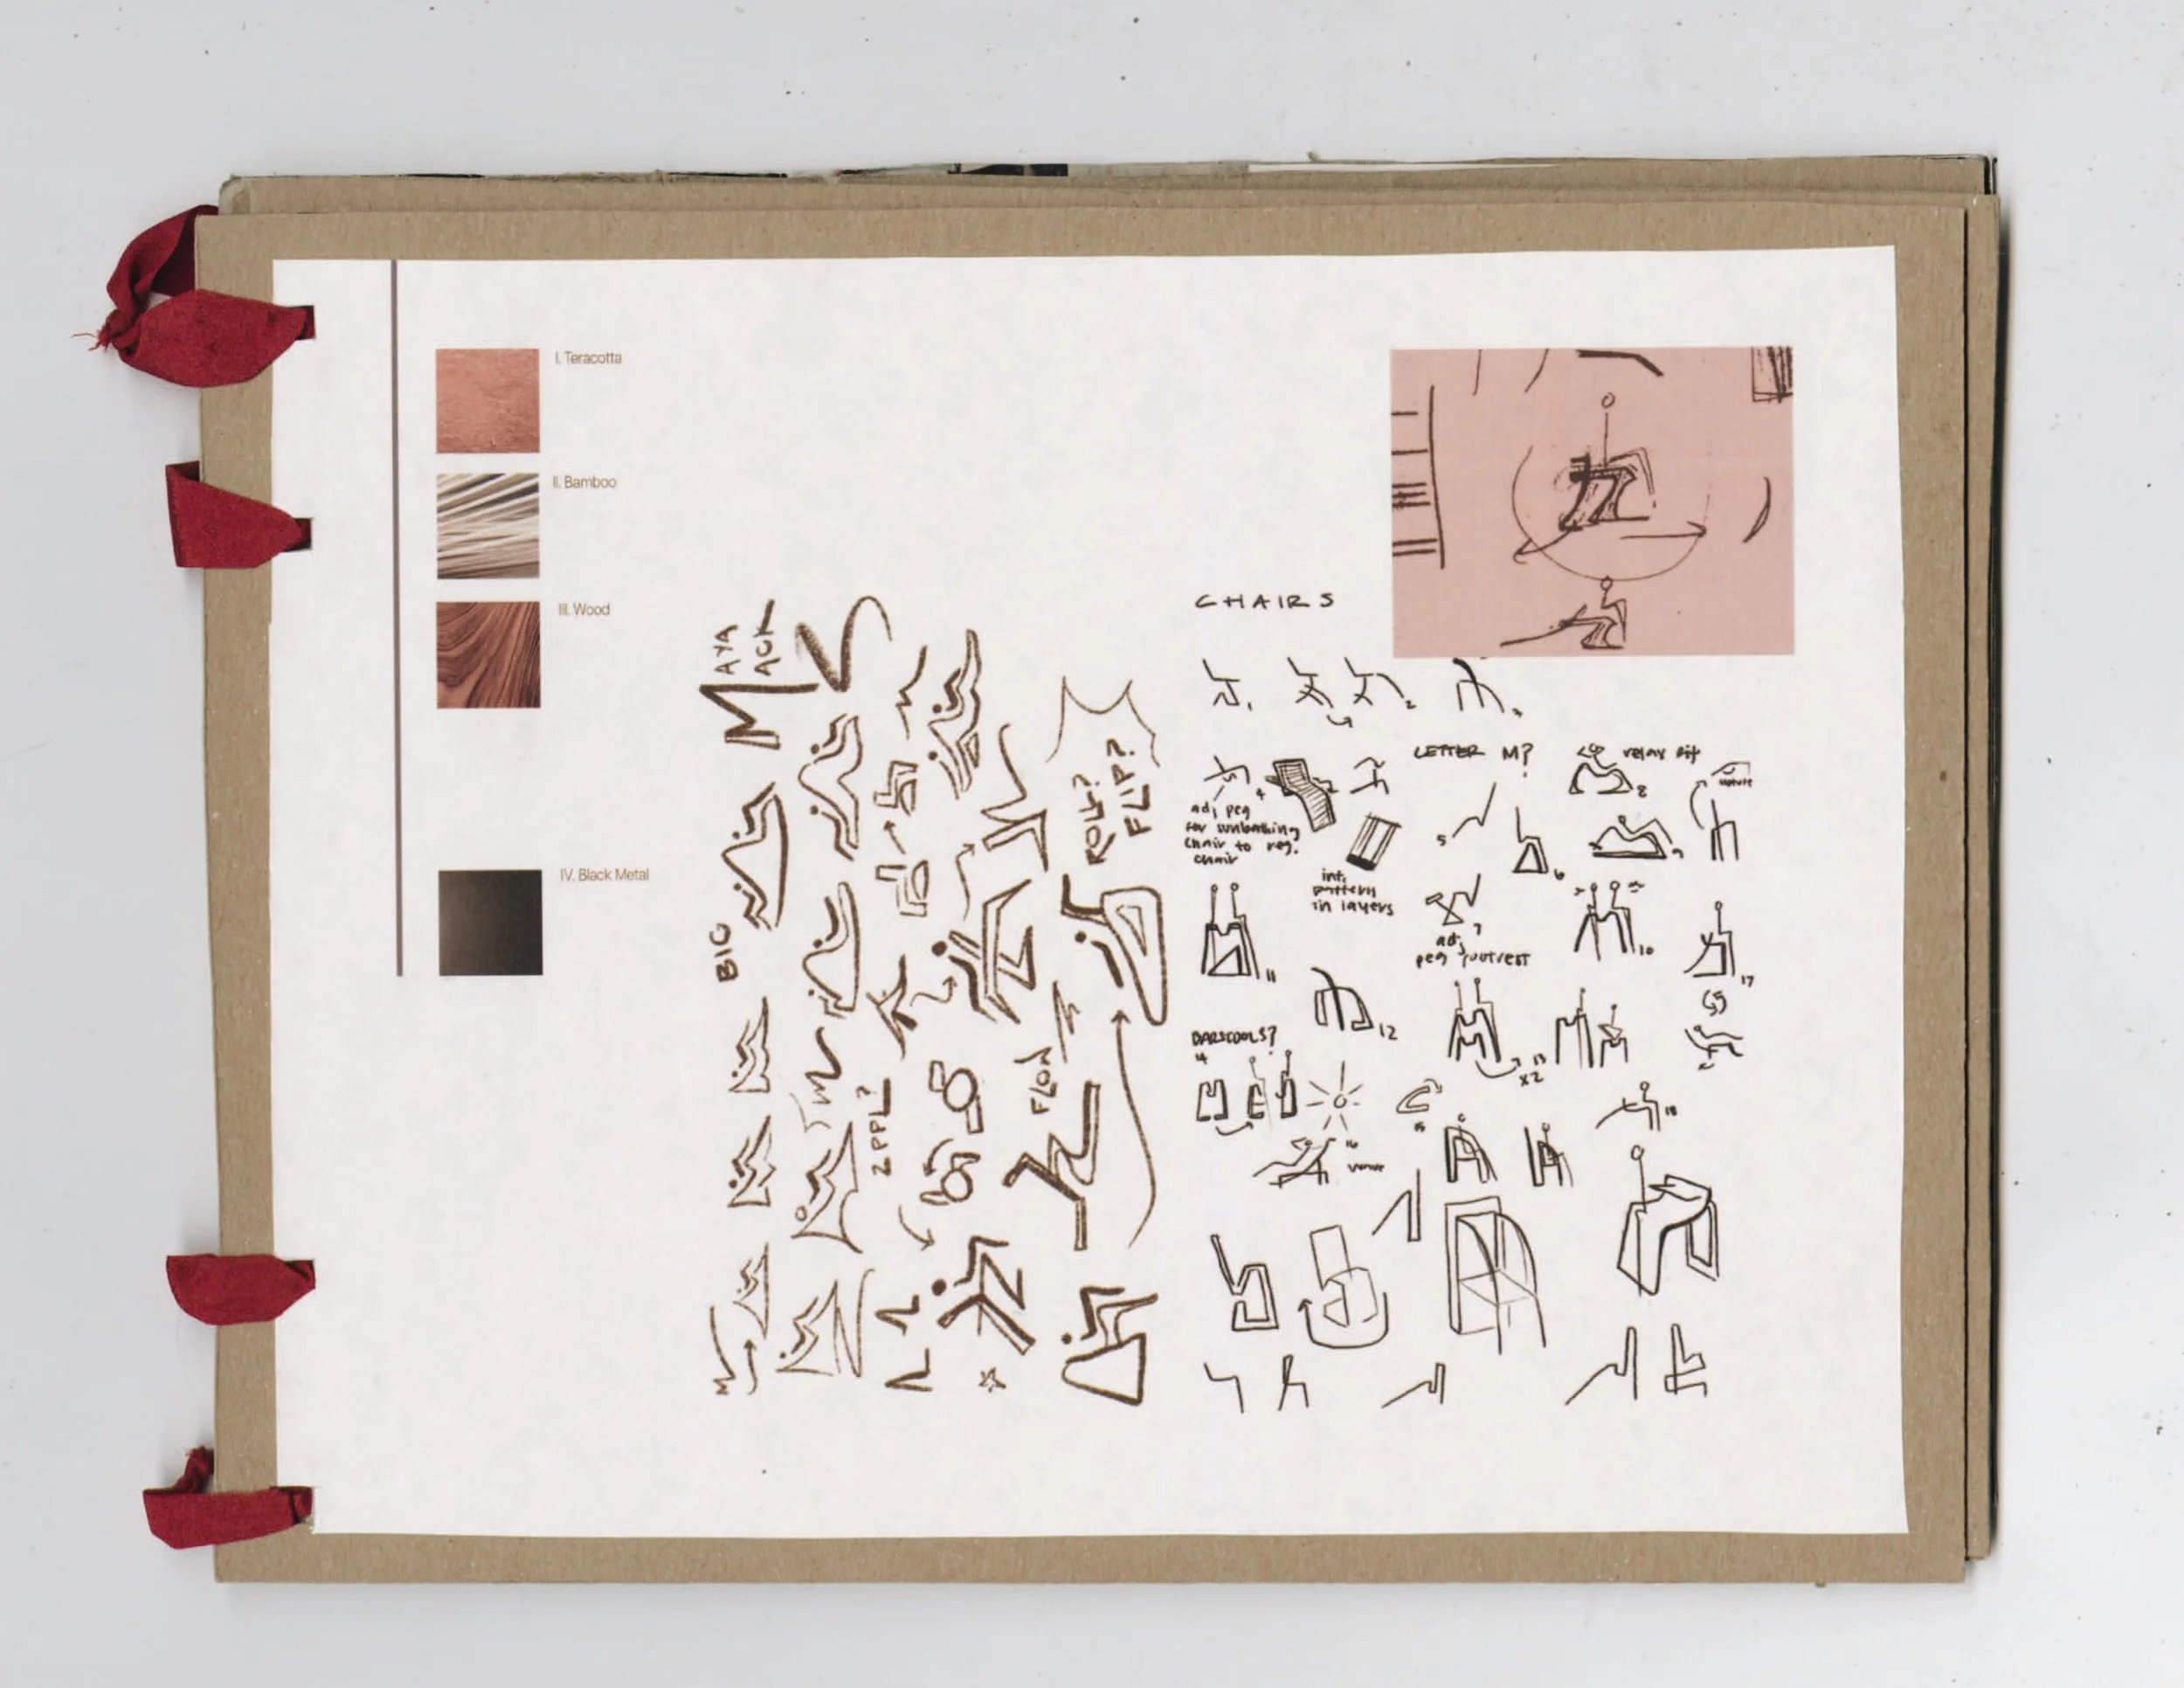 I. Teracotta
II. Bamboo
III. Wood
IV. Black Metal
MAYA
ACK
BIG
2 PPL?
FLOJ
ROLL?
FLIP?
CHAIRS
1
2
3
LETTER M?
relax sit
8
4
adj peg
for sunbathing
chair to reg.
chair
int.
pattern
in layers
5
6
9
7
adj
peg footrest
10
11
12
17
BARSTOOLS?
14
13
x2
15
16
18